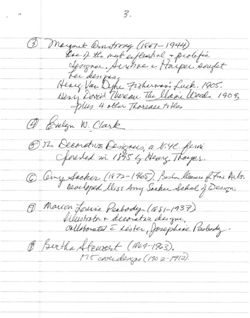 3.
③ Margaret Armstrong (1867-1944)
One of the most influential & prolific
designers. Scribner & Harper sought
her designs,
Henry Van Dyke Fisherman's Luck. 1905.
Henry David Thoreau The Maine Woods 1909,
plus 4 other Thoreau titles
④ Evelyn W. Clark
⑤ The Decorative Designers, a NYC firm
founded in 1895 by Henry Thayer.
⑥ Amy Sacker (1872-1965) Boston Museum of Fine Arts.
developed Miss Amy Sacker School of Design.
Marion Louise Peabody (1851-1937)
Illustrator & decorative designer,
collaborated c̄ sister, Josephine Peabody.
Bertha Stewart (1869-1963).
175 cover designs (1902-1912)